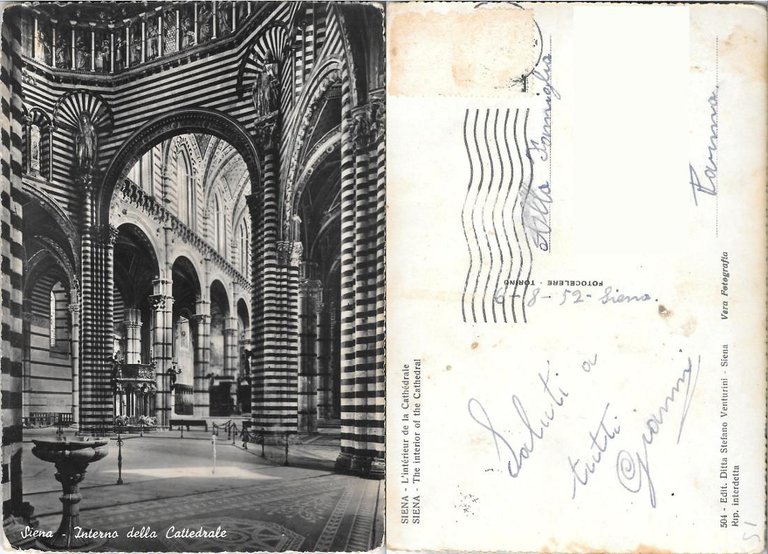 Siena - Interno della Cattedrale
SIENA - L'intérieur de la Cathédrale
SIENA - The interior of the Cathedral
6-8-52 - Siena.
Saluti a
tutti
Gianni
FOTOCELERE TORINO
Alla Famiglia
Parma
504 - Edit. Ditta Stefano Venturini - Siena Vera Fotografia
Rip. interdetta
51